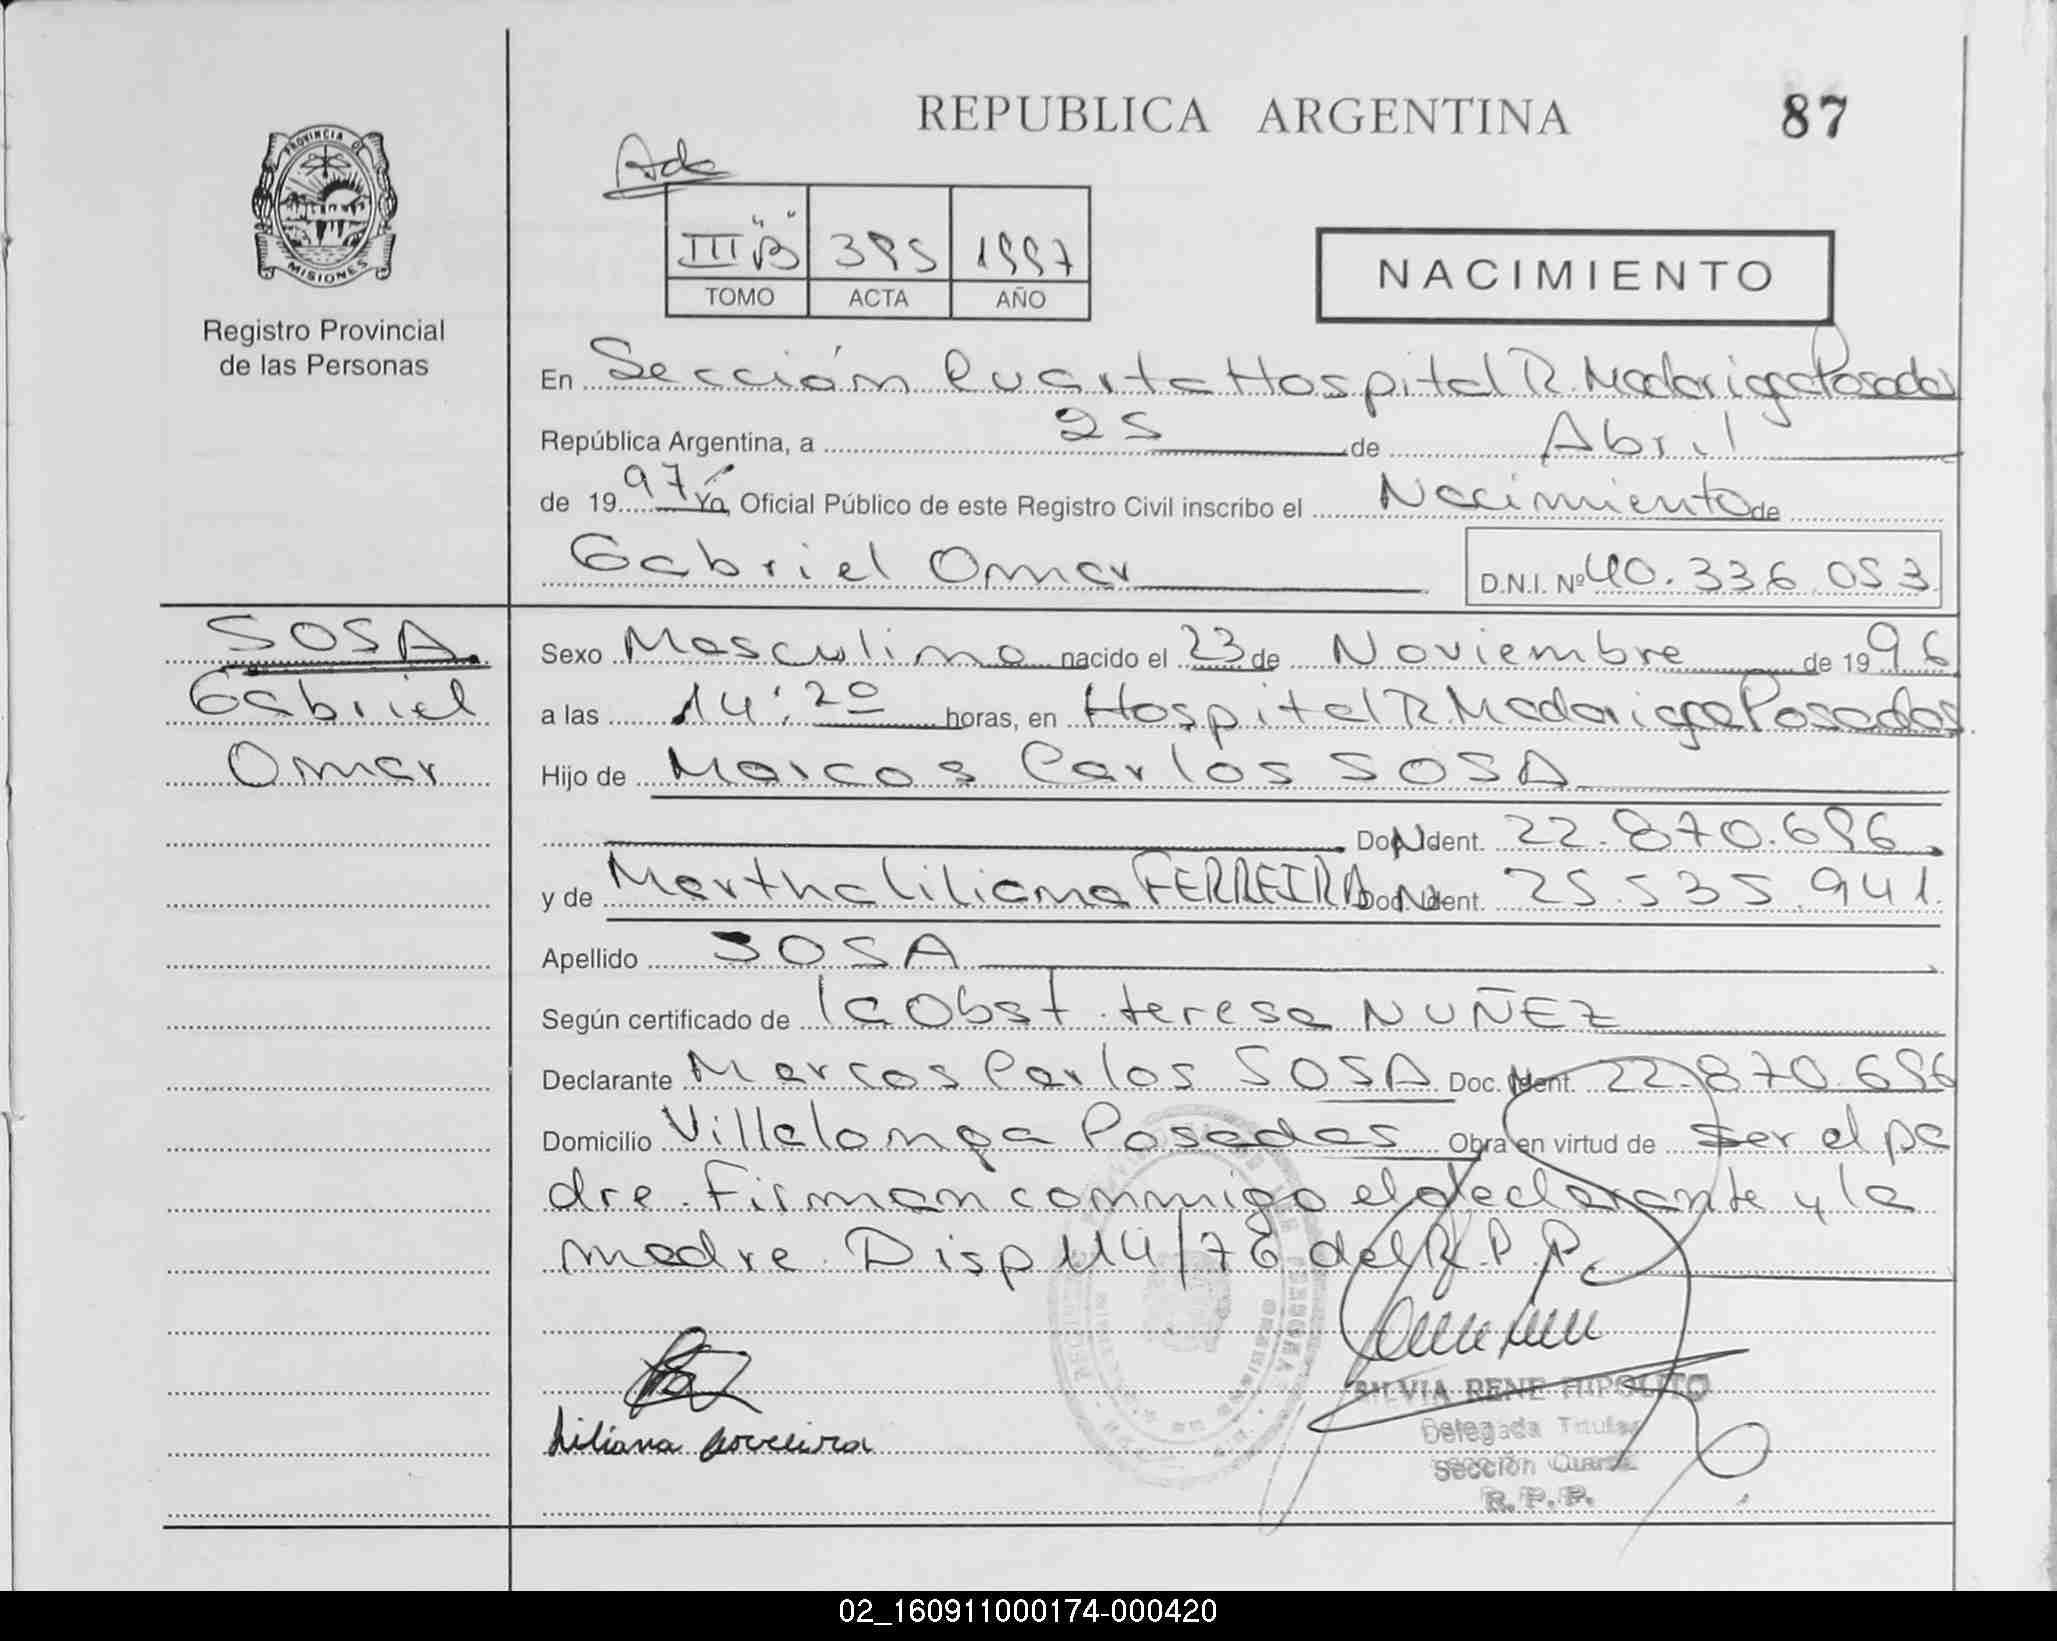 REPUBLICA ARGENTINA
87
PROVINCIA DE
MISIONES
Registro Provincial
de las Personas
III "B" 395 1997
TOMO ACTA AÑO
NACIMIENTO
En Sección Cuarta Hospital R. Madariaga Posadas
República Argentina, a 25 de Abril
de 1997 Yo, Oficial Público de este Registro Civil inscribo el Nacimiento de
Gabriel Omar D.N.I. Nº 40.336.053
SOSA
Gabriel
Omar
Sexo Masculino nacido el 23 de Noviembre de 1996
a las 14:20 horas, en Hospital R. Madariaga Posadas
Hijo de Marcos Carlos SOSA
Doc. Ident. 22.870.696
y de Martha Liliana FERREIRA Doc. Ident. 25.535.941
Apellido SOSA
Según certificado de la Obst. teresa NUÑEZ
Declarante Marcos Carlos SOSA Doc. Ident. 22.870.696
Domicilio Villalonga Posadas Obra en virtud de ser el pa
dre. Firman conmigo el declarante y la
madre. Disp 114/76 del R.P.P.
SILVIA RENE HIPOLITO
Delegada Titular
Sección Cuarta
R.P.P.
Liliana Ferreira
02_160911000174-000420